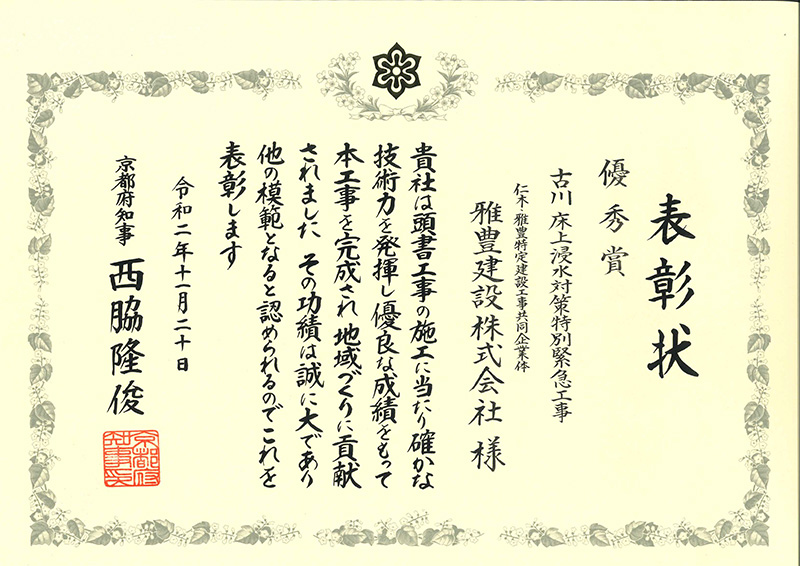 表彰状
優秀賞
古川 床上浸水対策特別緊急工事
仁木・雅豊特定建設工事共同企業体
雅豊建設株式会社 様
貴社は頭書工事の施工に当たり確かな
技術力を発揮し優良な成績をもって
本工事を完成され 地域づくりに貢献
されました その功績は誠に大であり
他の模範となると認められるのでこれを
表彰します
令和二年十一月二十日
京都府知事 西脇隆俊
京都府知事之印